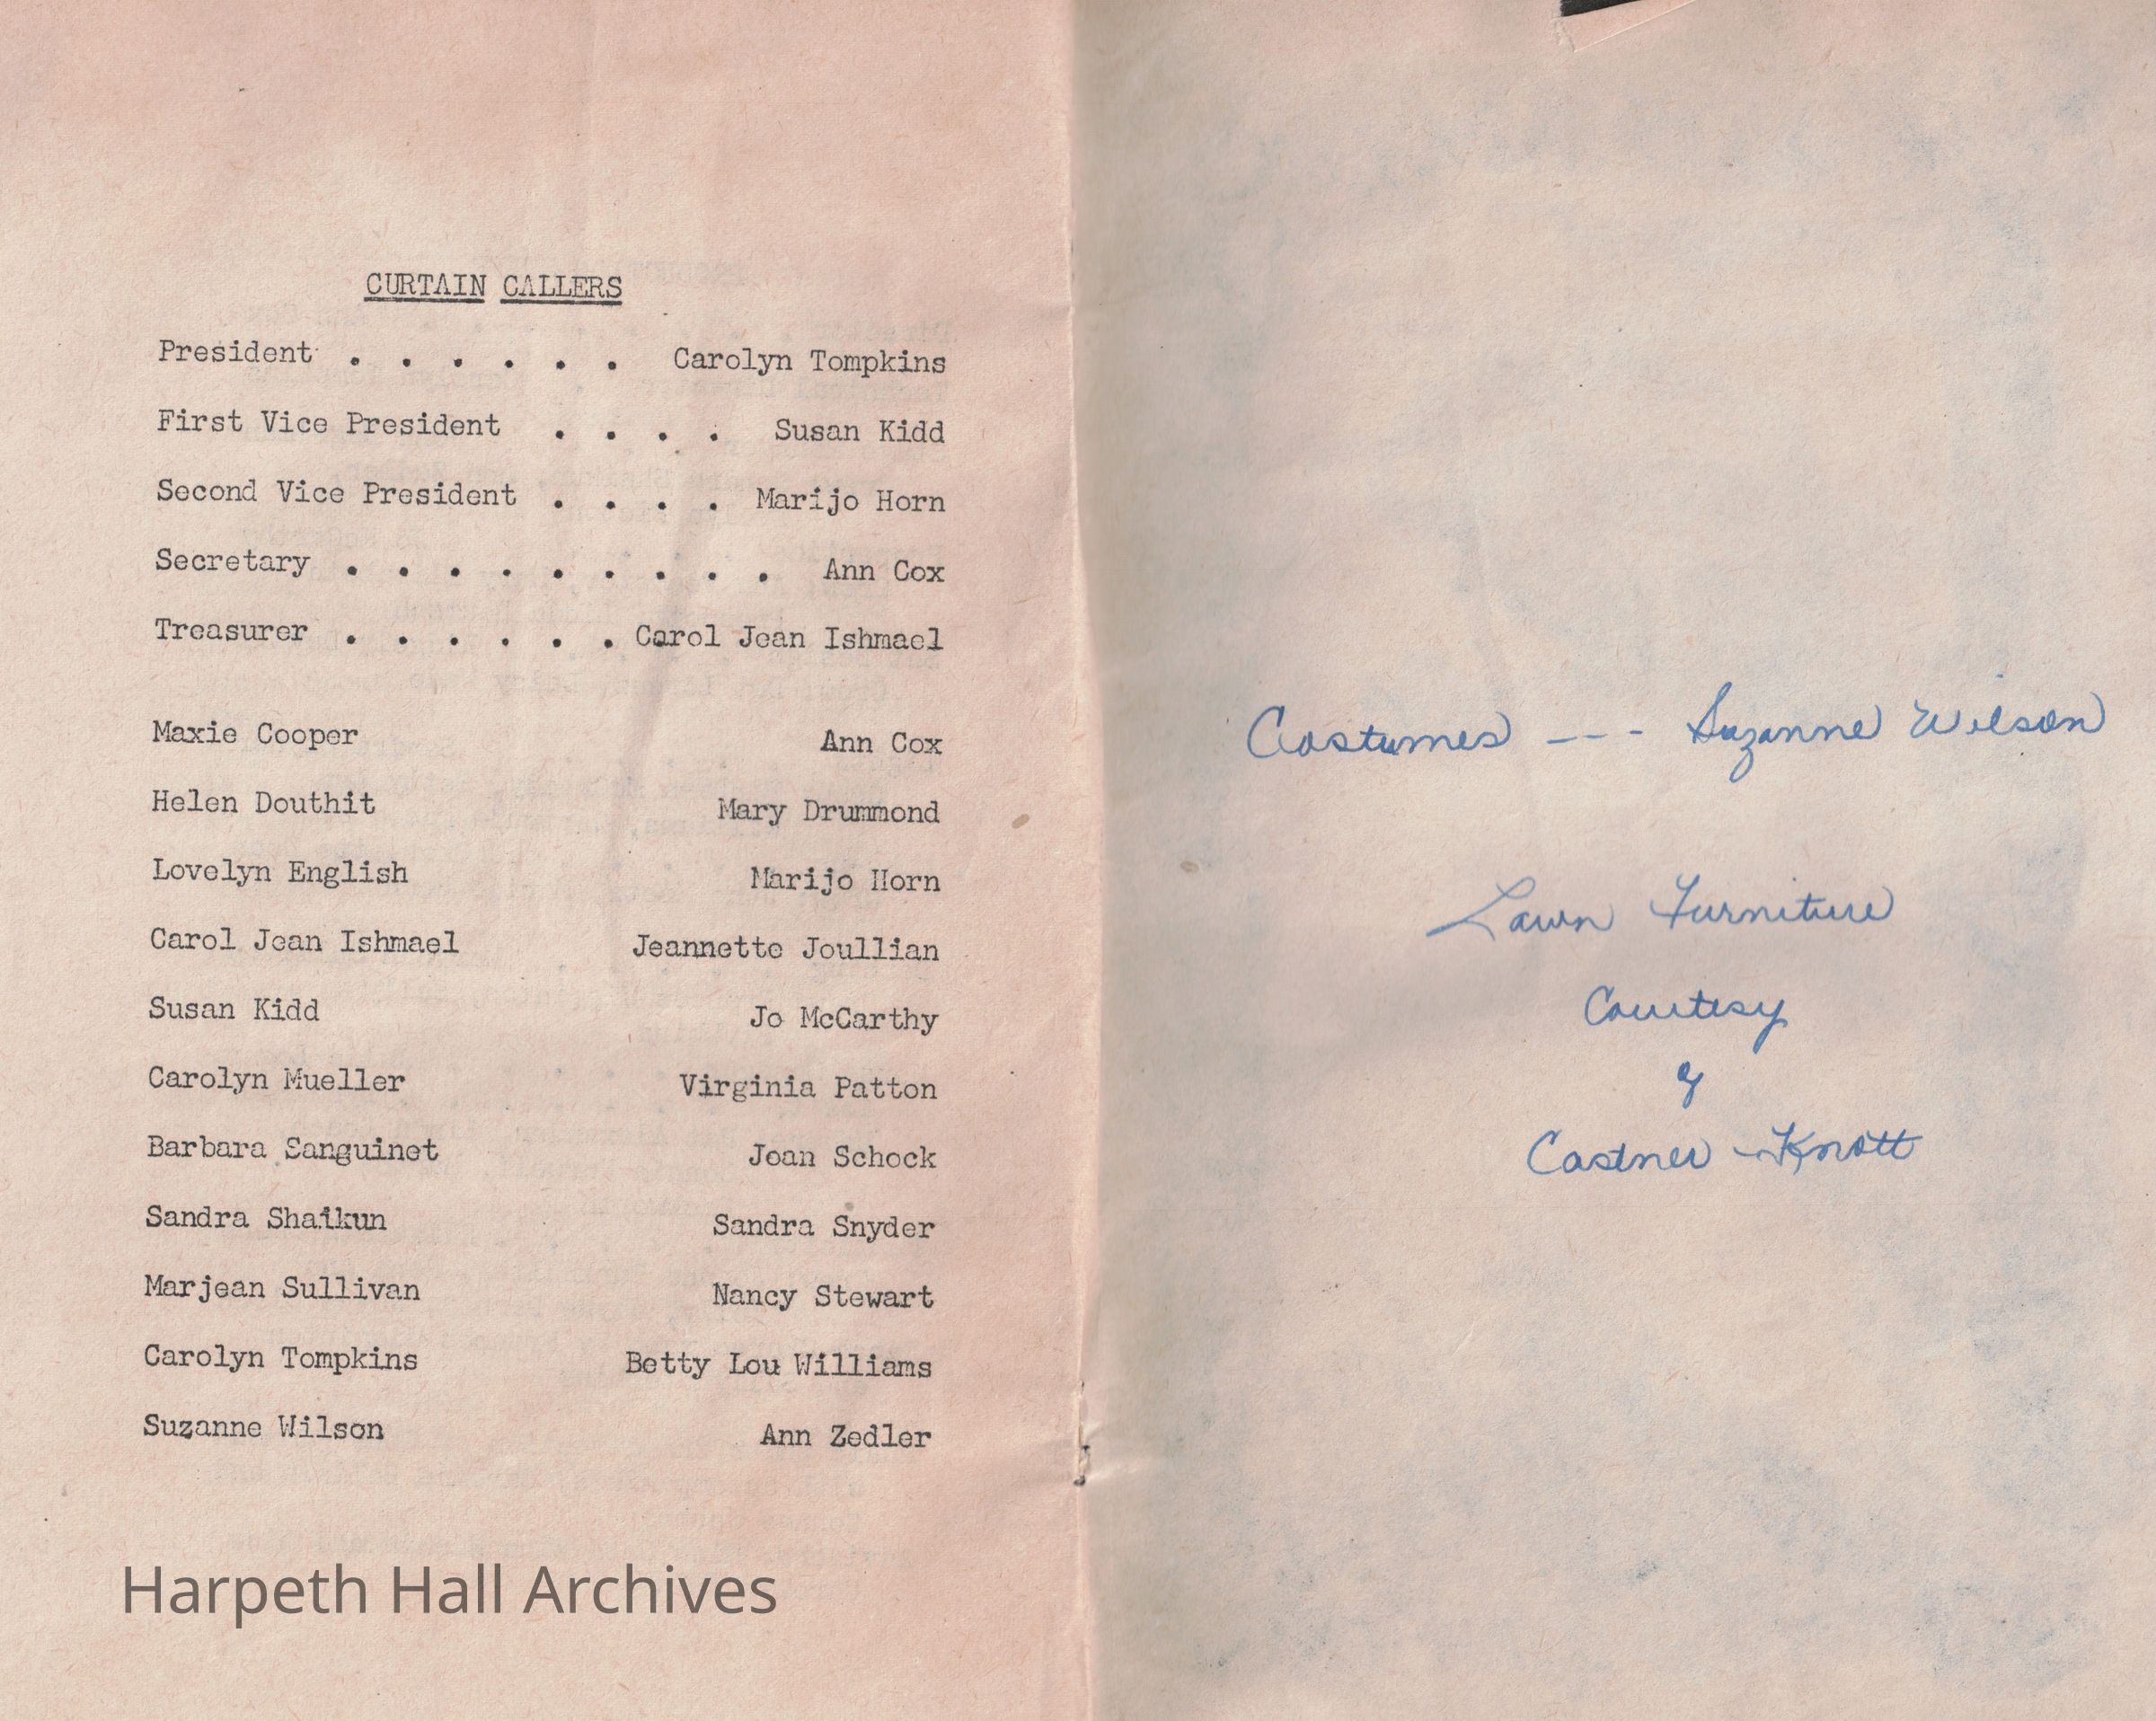 CURTAIN CALLERS
President . . . . . . Carolyn Tompkins
First Vice President . . . . Susan Kidd
Second Vice President . . . . Marijo Horn
Secretary . . . . . . . . . Ann Cox
Treasurer . . . . . . Carol Jean Ishmael
Maxie Cooper Ann Cox
Helen Douthit Mary Drummond
Lovelyn English Marijo Horn
Carol Jean Ishmael Jeannette Joullian
Susan Kidd Jo McCarthy
Carolyn Mueller Virginia Patton
Barbara Sanguinet Joan Schock
Sandra Shaikun Sandra Snyder
Marjean Sullivan Nancy Stewart
Carolyn Tompkins Betty Lou Williams
Suzanne Wilson Ann Zedler
Harpeth Hall Archives
Costumes --- Suzanne Wilson
Lawn Furniture
Courtesy
of
Castner-Knott